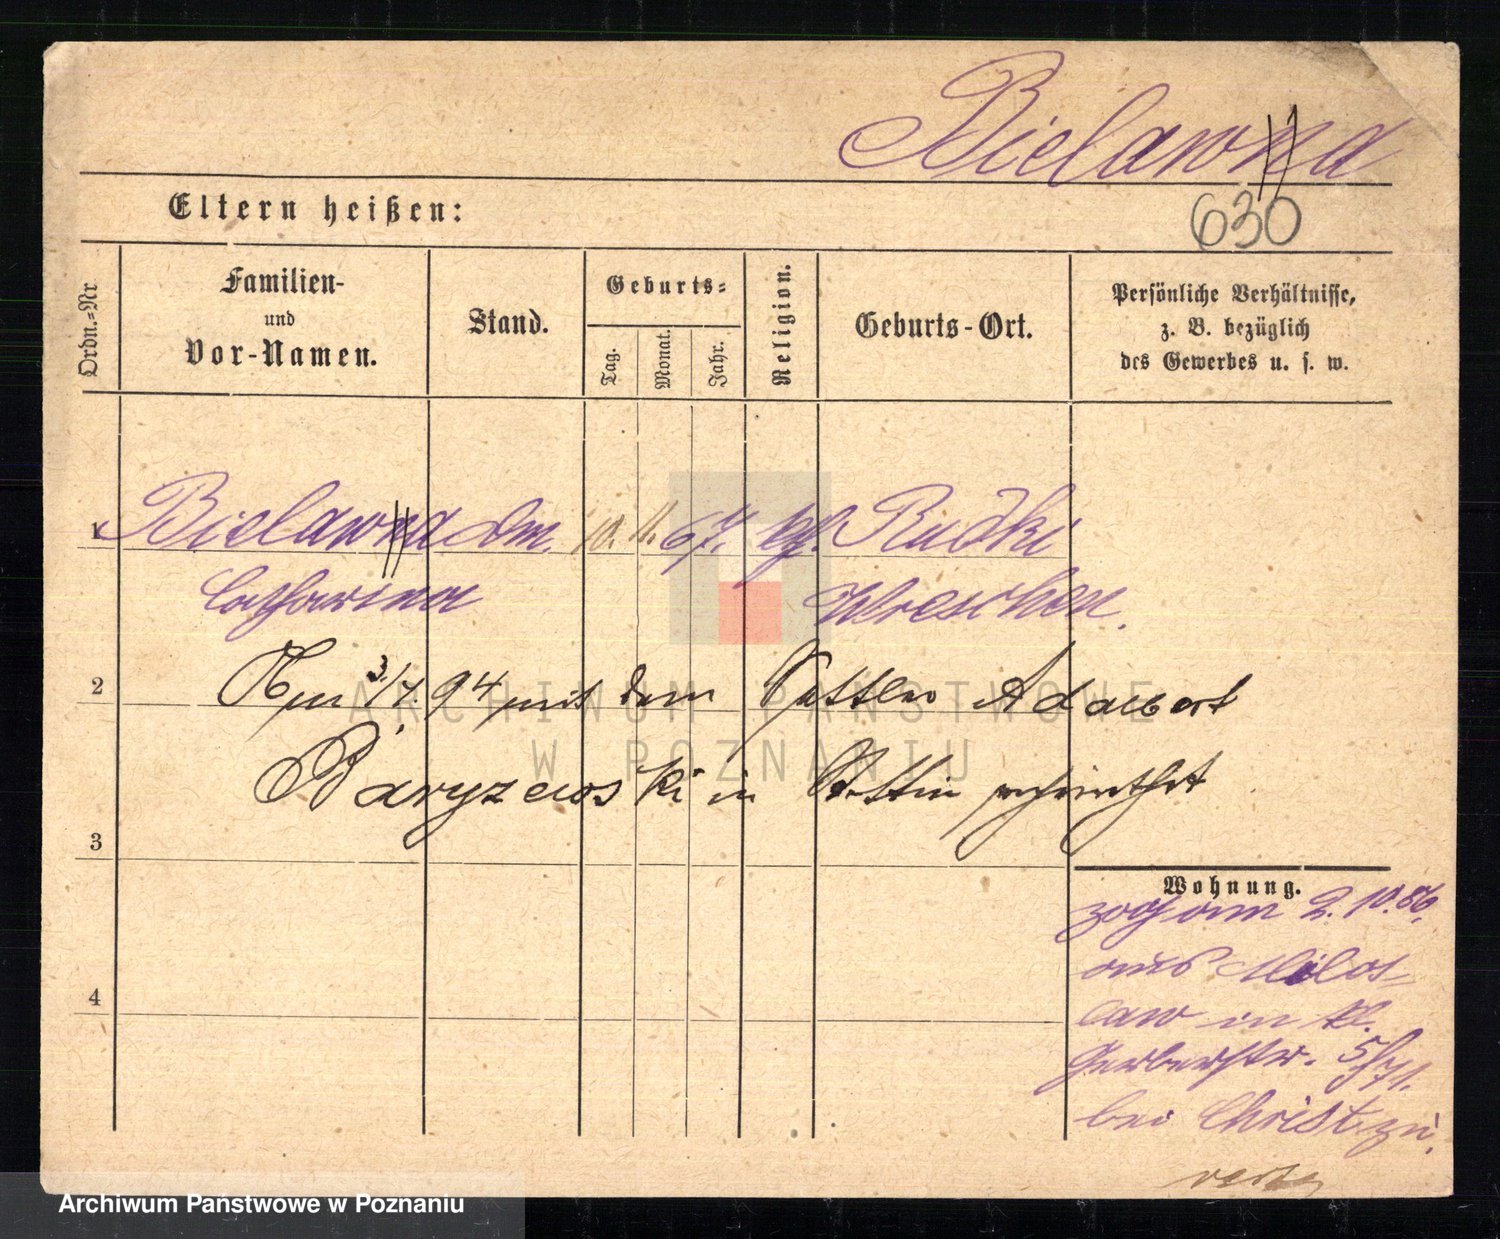 Bielawna
630
Eltern heißen:
Ordn.-Nr
Familien-
und
Vor-Namen.
Stand.
Geburts-
Tag.
Monat.
Jahr.
Religion.
Geburts-Ort.
Persönliche Verhältnisse,
z. B. bezüglich
des Gewerbes u. s. w.
1 Bielawna 10. 11. 67. kf. Rudki
Catharina Wreschen.
2 Am 3/7. 94 mit dem Sattler Adalbert
Baryzewski in Stettin verheirathet
3
Wohnung.
zog am 2. 10. 86.
aus Milos-
law in kl.
Gerberstr. 5/7 I.
bei Christ zu.
4
ARCHIWUM PAŃSTWOWE
W POZNANIU
Archiwum Państwowe w Poznaniu